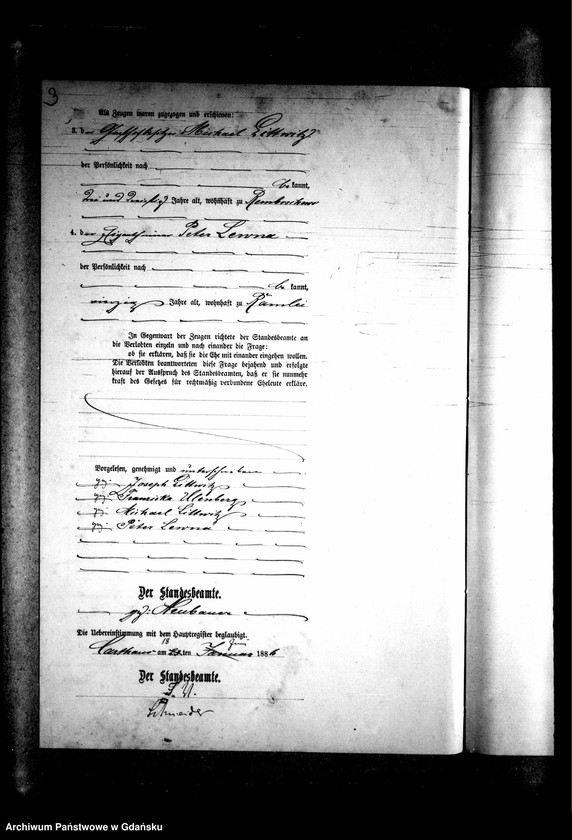 3
Als Zeugen waren zugezogen und erschienen:
3. der Michael Littwitz
der Persönlichkeit nach
be kannt,
drei und dreißig Jahre alt, wohnhaft zu
4. der Eigenthümer Peter Lewna
der Persönlichkeit nach
be kannt,
vierzig Jahre alt, wohnhaft zu Ramlei
In Gegenwart der Zeugen richtete der Standesbeamte an
die Verlobten einzeln und nach einander die Frage:
ob sie erklären, daß sie die Ehe mit einander eingehen wollen.
Die Verlobten beantworteten diese Frage bejahend und erfolgte
hierauf der Ausspruch des Standesbeamten, daß er sie nunmehr
kraft des Gesetzes für rechtmäßig verbundene Eheleute erkläre.
Vorgelesen, genehmigt und unterschrieben
gez: Joseph Littwitz
gez: Franziska Ellenberg
gez: Michael Littwitz
gez: Peter Lewna
Der Standesbeamte.
gez: Neubauer
Die Uebereinstimmung mit dem Hauptregister beglaubigt.
18 Juni
Carthaus am ten Januar 1886
Der Standesbeamte.
J. V.
Schneider
Archiwum Państwowe w Gdańsku